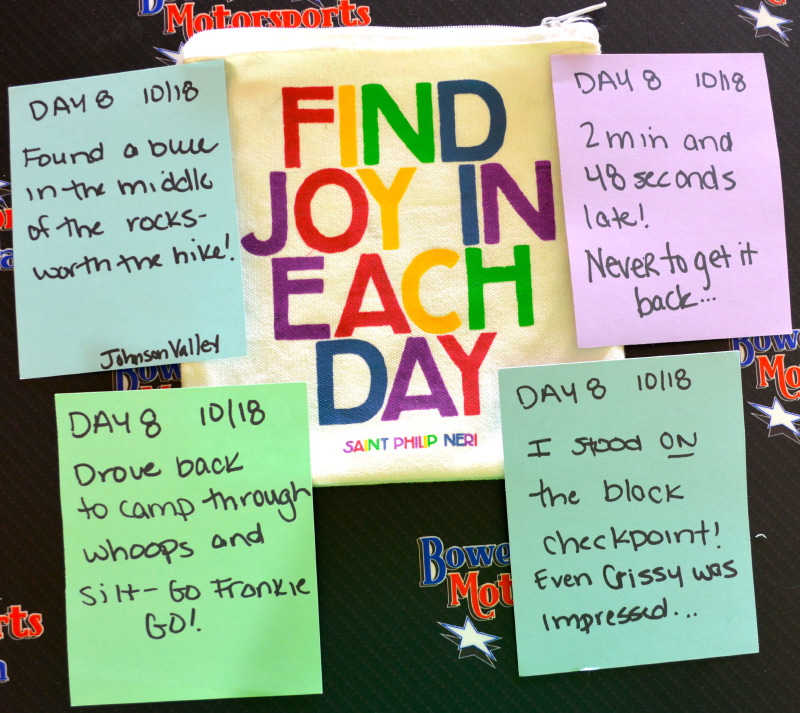 Motorsports
FIND
JOY IN
EACH
DAY
SAINT PHILIP NERI
DAY 8 10/18
Found a blue
in the middle
of the rocks-
worth the hike!
Johnson Valley
DAY 8 10/18
2 min and
48 seconds
late!
Never to get it
back...
DAY 8 10/18
Drove back
to camp through
whoops and
silt- Go Frankie
GO!
DAY 8 10/18
I stood ON
the black
checkpoint!
Even Crissy was
impressed...
Bowe
Motorsp